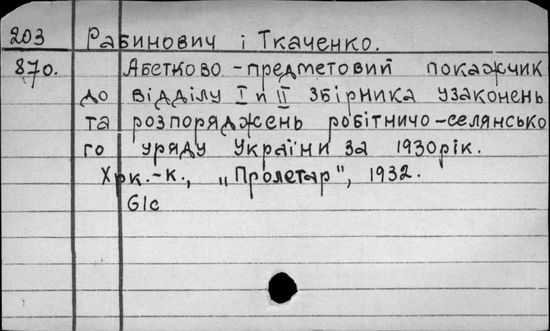 203 Рабинович і Ткаченко.
870. Абетково-предметовий покажчик
до відділу I и II збірника узаконень
та розпоряджень робітничо-селянсько
го уряду України за 1930рік.
Хрк.-к., „Пролетар", 1932.
61с